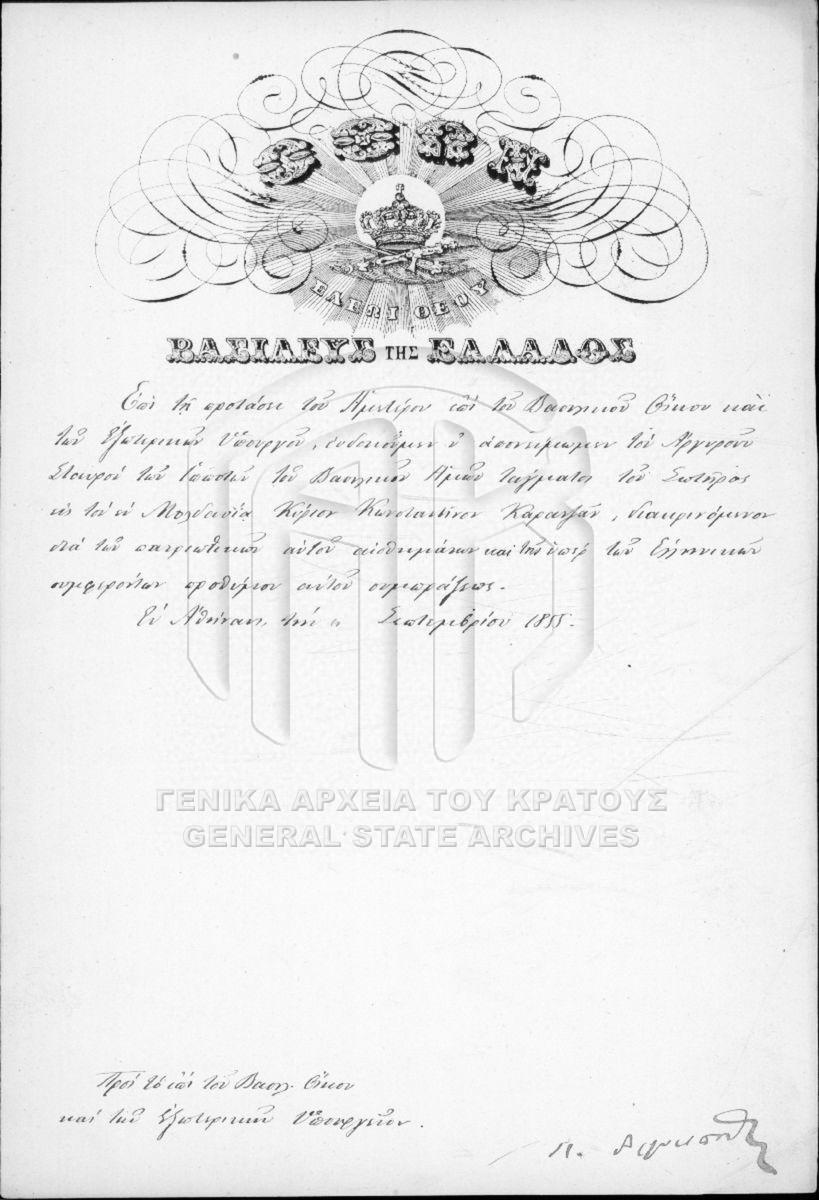 ΟΘΩΝ
ΕΛΕΩΙ ΘΕΟΥ
ΒΑΣΙΛΕΥΣ ΤΗΣ ΕΛΛΑΔΟΣ
Ἐπὶ τῇ προτάσει τοῦ Ἡμετέρου ἐπὶ τοῦ Βασιλικοῦ Οἴκου καὶ
τῶν Ἐξωτερικῶν Ὑπουργοῦ, εὐδοκοῦμεν ν' ἀπονείμωμεν τὸν Ἀργυροῦν
Σταυρὸν τῶν Ἱπποτῶν τοῦ Βασιλικοῦ Ἡμῶν τάγματος τοῦ Σωτῆρος
εἰς τὸν ἐν Μολδαυίᾳ Κύριον Κωνσταντῖνον Καρατζᾶν, διακρινόμενον
διὰ τῶν πατριωτικῶν αὐτοῦ αἰσθημάτων καὶ τῆς ὑπὲρ τῶν Ἑλληνικῶν
συμφερόντων προθύμου αὐτοῦ συμπράξεως.
Ἐν Ἀθήναις, τὴν Σεπτεμβρίου 1855.
ΓΕΝΙΚΑ ΑΡΧΕΙΑ ΤΟΥ ΚΡΑΤΟΥΣ
GENERAL STATE ARCHIVES
Πρὸς τὸ ἐπὶ τοῦ Βασιλ. Οἴκου
καὶ τῶν Ἐξωτερικῶν Ὑπουργεῖον.